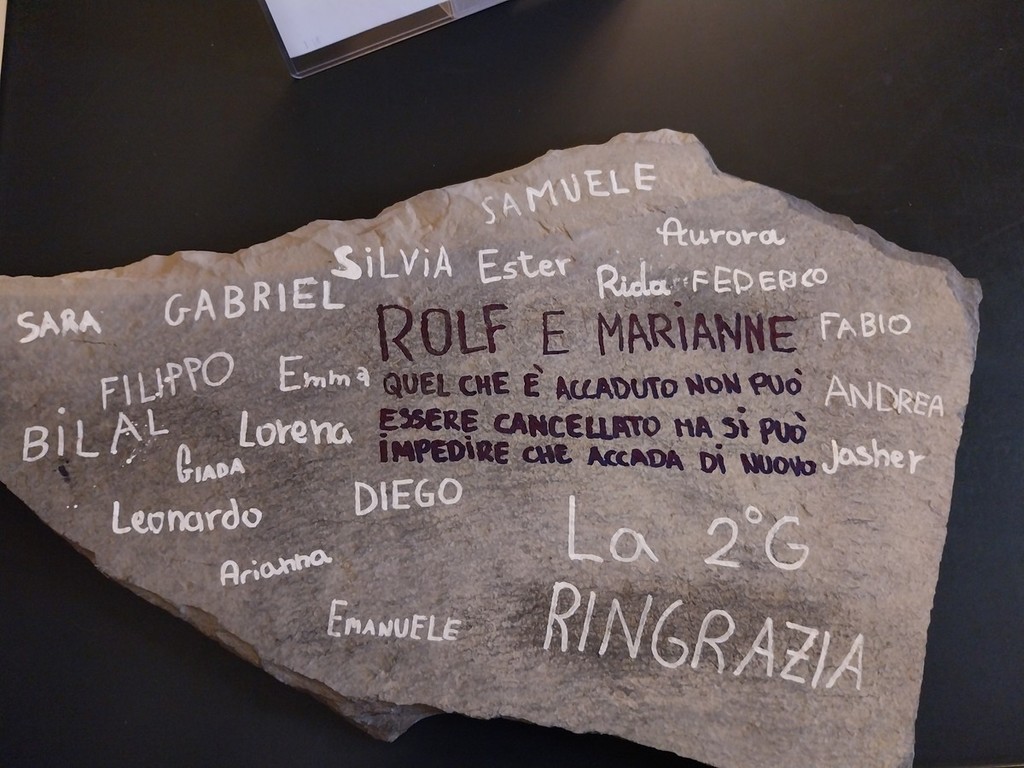 SAMUELE
Aurora
SiLViA Ester Rida FEDERICO
SARA GABRIEL
ROLF E MARiANNE FABIO
FILIPPO Emma QUEL CHE È ACCADUTO NON PUÒ ANDREA
BiLAL Lorena ESSERE CANCELLATO MA Si PUÒ
GIADA iMPEDIRE CHE ACCADA Di NUOVO Jasher
Leonardo DIEGO
La 2°G
Arianna
EMANUELE RINGRAZIA